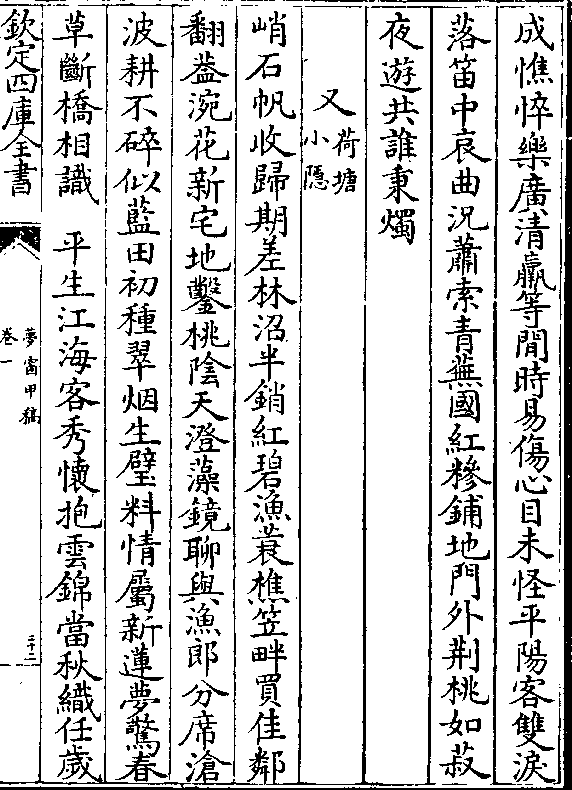 成憔悴樂廣清羸等閒時易傷心目未怪平陽客雙淚
落笛中哀曲況蕭索青蕪國紅糝鋪地門外荆桃如菽
夜遊共誰秉燭
又荷塘小隱
峭石帆收歸期差林沼半銷紅碧漁蓑樵笠畔買佳鄰
翻葢浣花新宅地鑿桃陰天澄藻鏡聊與漁郎分席滄
波耕不碎似藍田初種翠烟生璧料情屬新蓮夢驚春
草斷橋相識　平生江海客秀懷抱雲錦當秋織任歲
欽定四庫全書
夢窗甲稿
卷一
三十二